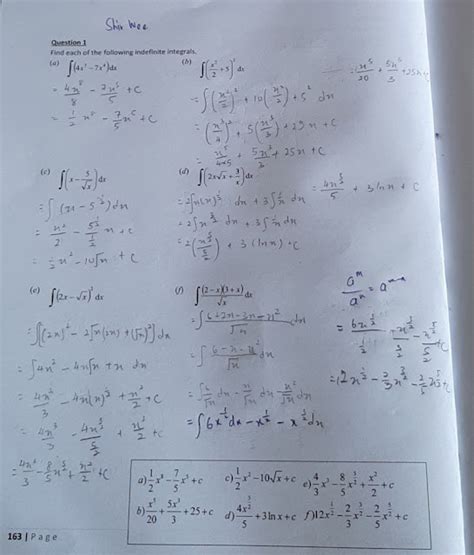 Shin Wee
Question 1
Find each of the following indefinite integrals.
(a) ∫(4x⁷ − 7x⁴)dx
= 4x⁸/8 − 7x⁵/5 + C
= 1/2 x⁸ − 7/5 x⁵ + C
(b) ∫(x²/2 + 5)² dx
= x⁵/20 + 5x³/3 + 25x +
= ∫(x²/2)² + 10(x²/2) + 5² dx
= 5(x³/3) + 25x + C
= x⁵/4×5 + 5x³/3 + 25x + C
(c) ∫(x − 5/√x)dx
(d) ∫(2x√x + 3/x)dx
= 4x^(5/2)/5 + 3 ln x + C
= 2∫x(x)^(1/2) dx + 3∫1/x dx
= 2∫x^(3/2) dx + 3∫1/x dx
= 2(x^(5/2)/(5/2)) + 3 (ln x) + C
= x²/2
= 1/2 x² − 10√x + C
(e) ∫(2x − √x)² dx
= ∫[(2x)² − 2√x(2x) + (√x)²] dx
= ∫4x² − 4x√x + x dx
= 4x³/3 − 4x(x)^(1/2) + x²/2 + C
= 4x³/3 − 4x^(5/2)/(5/2) + x²/2 + C
= 4x³/3 − 8/5 x^(5/2) + x²/2 + C
(f) ∫(2−x)(3+x)/√x dx
aᵐ/aⁿ = aᵐ⁻ⁿ
= ∫6+2x−3x−x²/√x dx
= ∫6−x−x²/√x dx
= ∫6/√x dx − x/√x dx − x²/√x dx
= ∫6x^(1/2) dx − x^(1/2) − x^(3/2) dx
= 12x^(1/2) − 2/3 x^(3/2) − 2/5 x^(5/2) + C
a) 1/2 x⁸ − 7/5 x⁵ + c
c) 1/2 x² − 10√x + c
e) 4/3 x³ − 8/5 x^(5/2) + x²/2 + c
b) x⁵/20 + 5x³/3 + 25 + c
d) 4x^(5/2)/5 + 3ln x + c
f) 12x^(1/2) − 2/3 x^(3/2) − 2/5 x^(5/2) + c
163 | Page